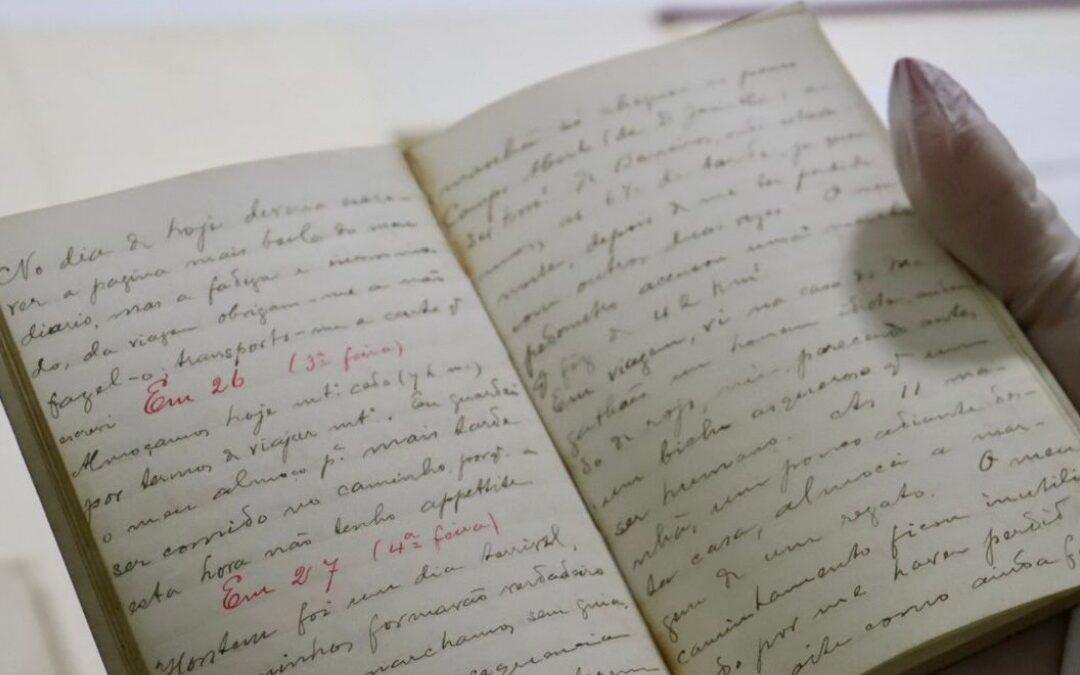 No dia de hoje deveria escre-
ver a pagina mais bella do meu
diario, mas a fadiga e incommo-
do, da viagem obrigam-me a não
fazel-o; transporto-me a carta q
escrevi
Em 26 (3ª feira)
Almoçamos hoje mtº cedo (7 h m.)
por termos de viajar mtº. Eu guardei
o meu almoço pª mais tarde
ser comido no caminho, porqº a
esta hora não tenho appettite
Em 27 (4ª feira)
Hontem foi um dia terrivel,
caminhos formavão verdadeiro
marchamos sem guia,

manhã só chegar no pouso
Campo Aberto (de D.
São José de Barreiros, onde
mos, as 6½ da tarde, já
noute, depois de me ter perdido
com outros, duas vezes. O meu
pedometro accusou uma
q fiz de 42 Km
Em viagem, vi na casa de
um homem
do de rojo,
um bicho asqueroso q um
ser humano. As 11 ma-
nhã, um pouco adiante des-
ta casa, almocei a mar-
gem de um regato. O meu
caminhamento ficou inutili-
do por me haver perdido
como ainda